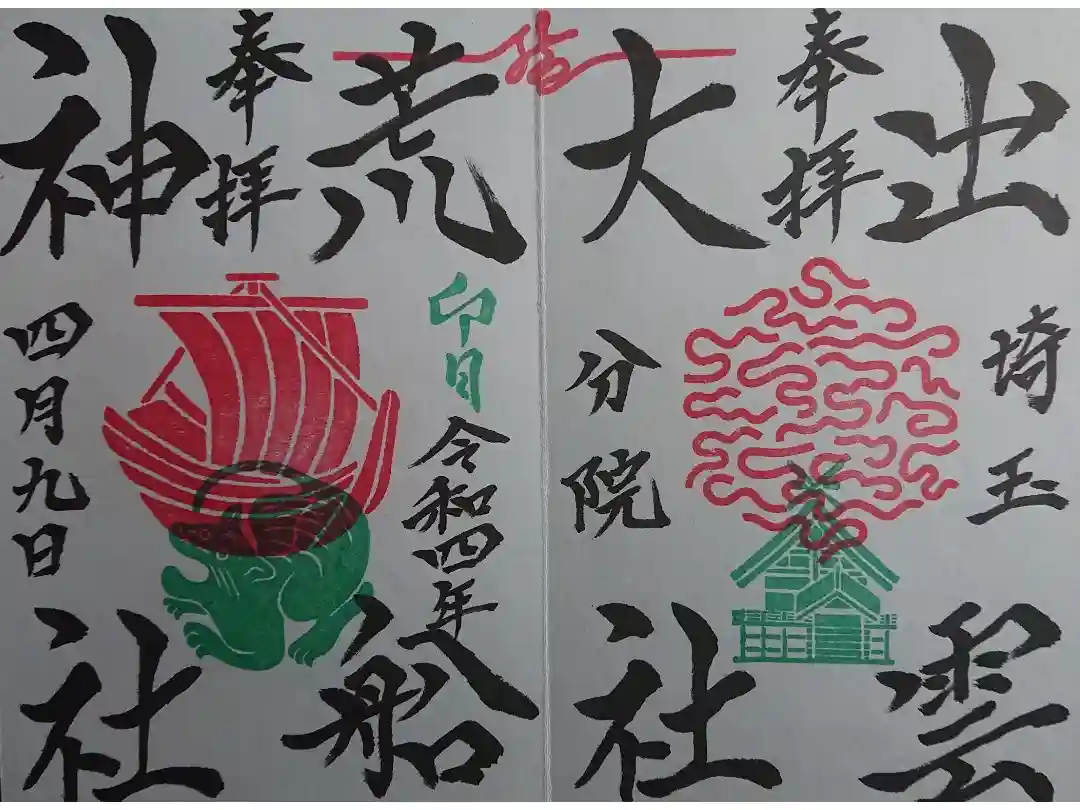 奉拝
出雲
大社
埼玉
分院
結
奉拝
荒船
神社
卯月
令和四年
四月九日